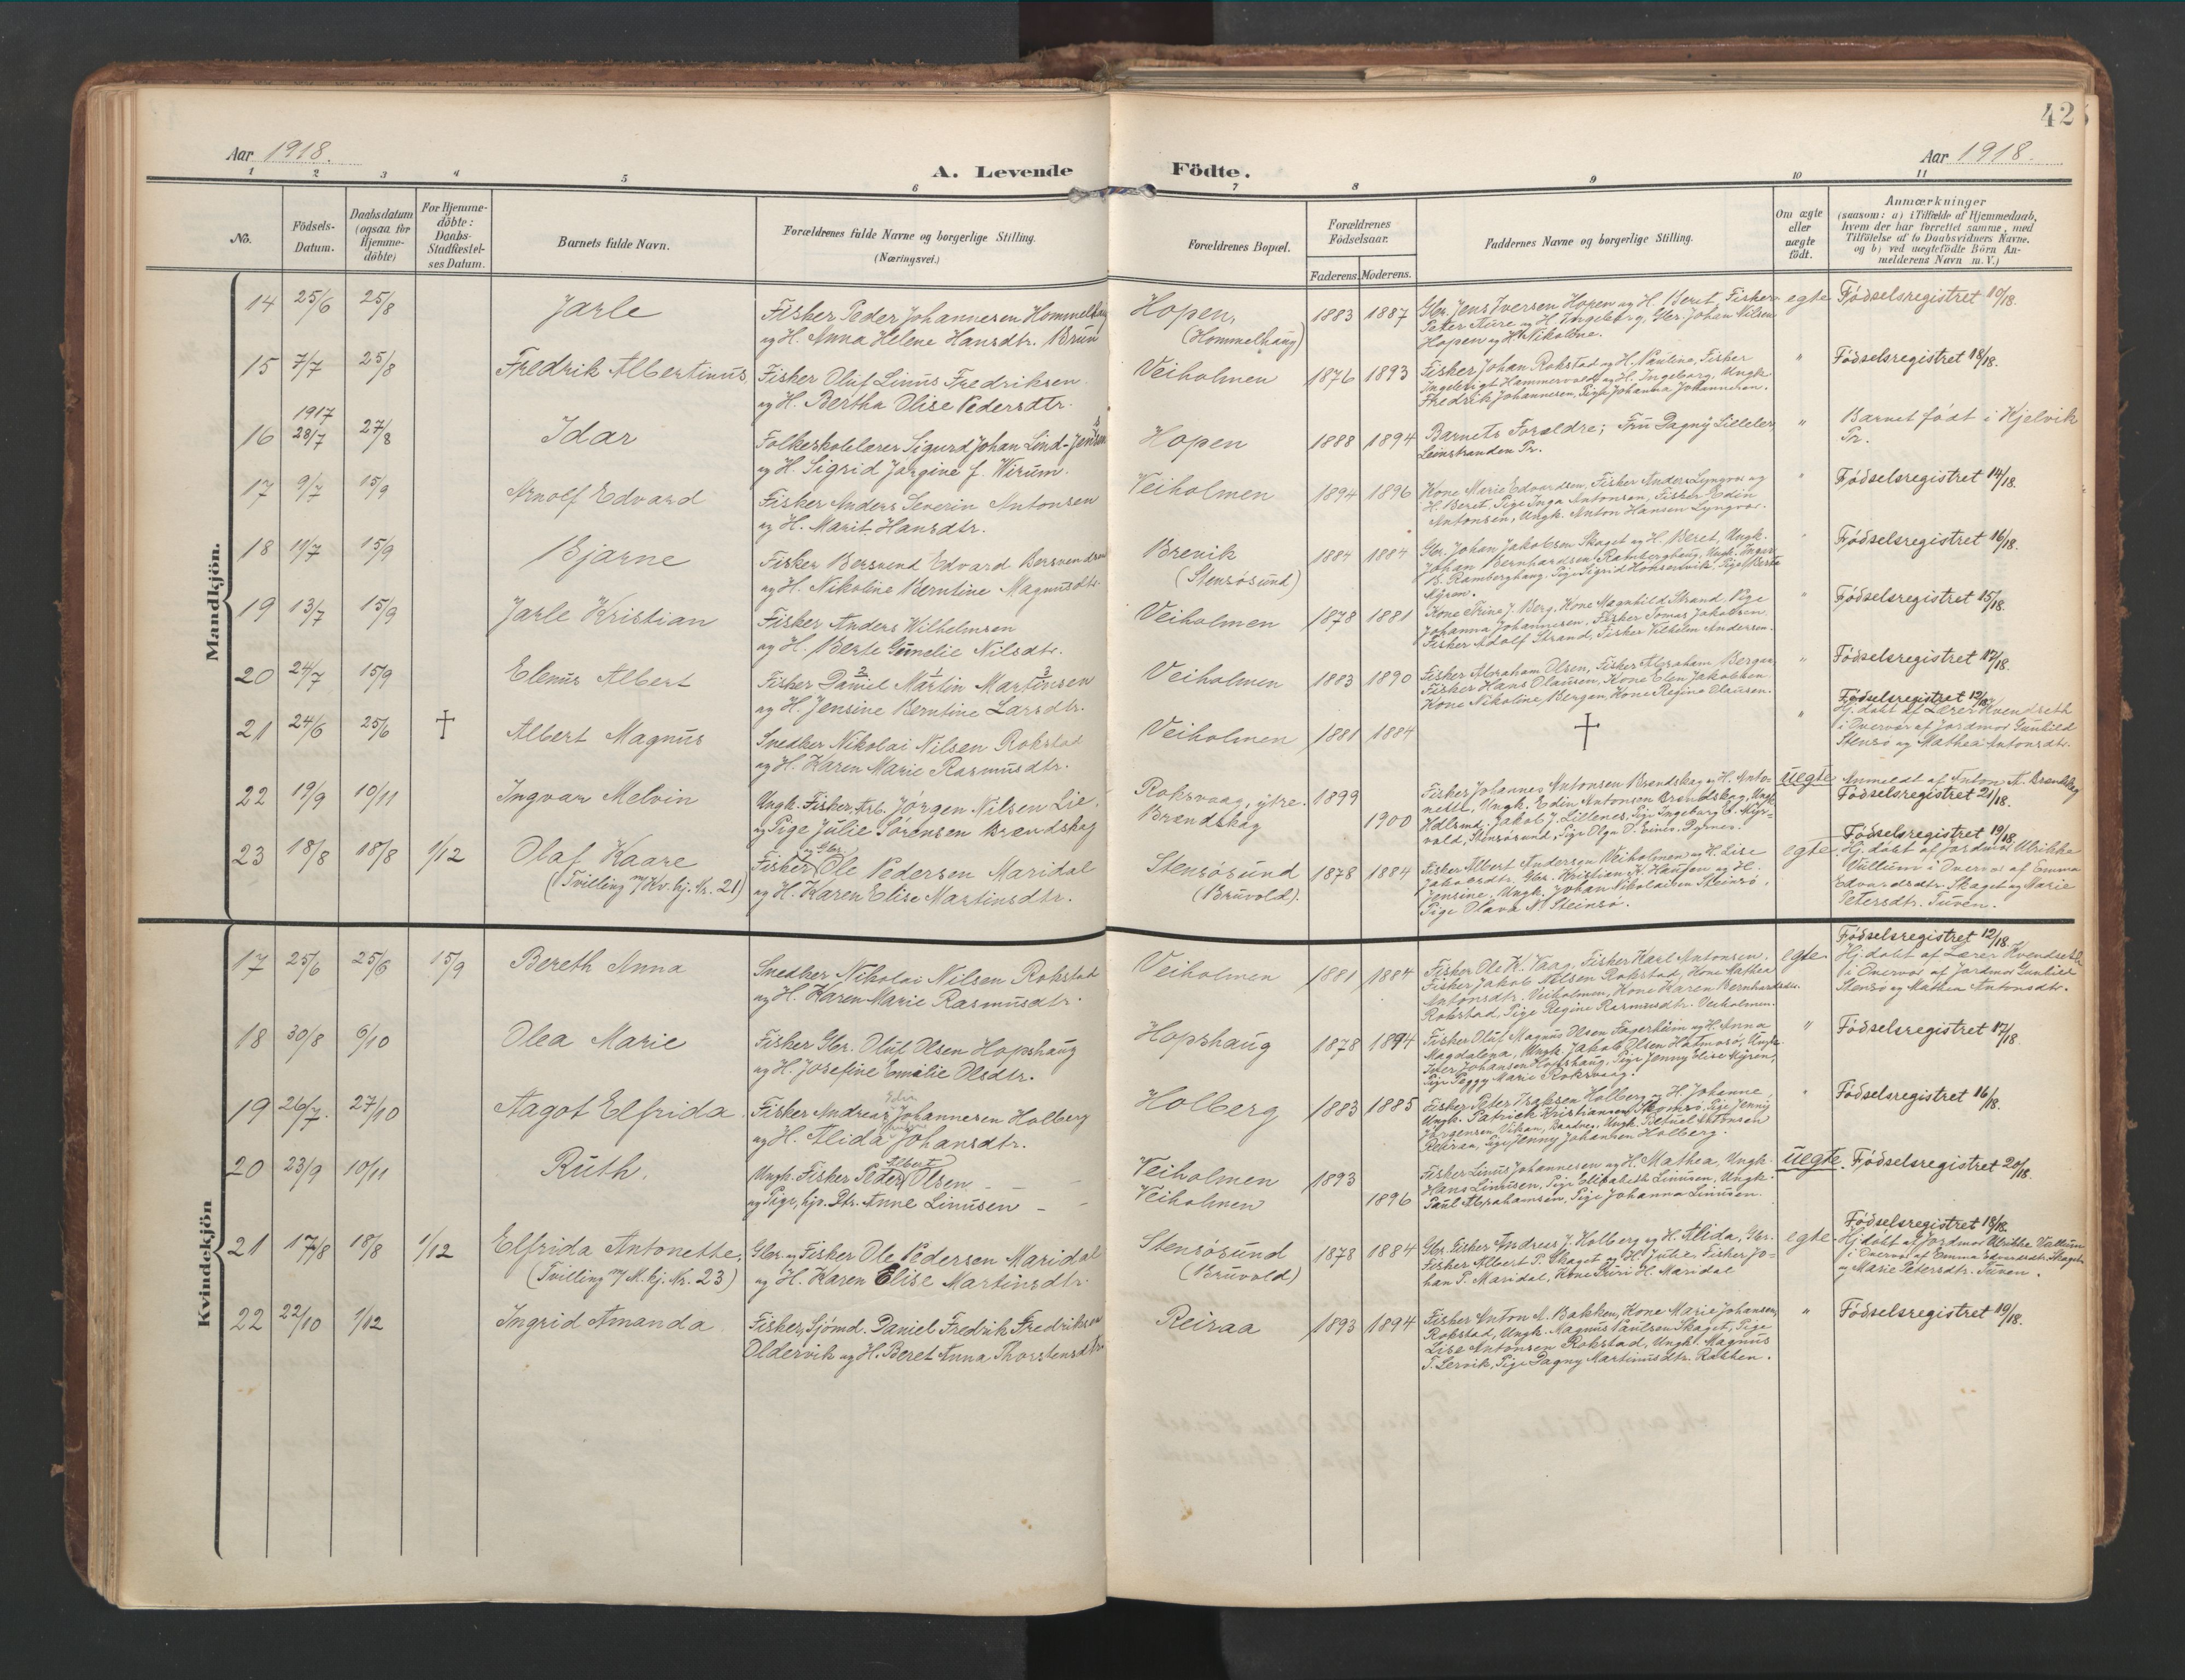 42
Aar 1918.
A. Levende Fødte.
Aar 1918.
1 2 3 4 5 6 7 8 9 10 11
No.
Födsels-Datum.
Daabsdatum (ogsaa for Hjemme-döbte)
For Hjemme-döbte: Daabs-Stadfæstel-ses Datum.
Barnets fulde Navn.
Forældrenes fulde Navne og borgerlige Stilling.
(Næringsvei.)
Forældrenes Bopæl.
Forældrenes Födselsaar.
Faderens. Moderens.
Faddernes Navne og borgerlige Stilling.
Om ægte eller uægte födt.
Anmærkninger
(saasom: a) i Tilfælde af Hjemmedaab,
hvem der har forrettet samme, med
Tilföielse af to Daabsvidners Navne,
og b) ved uægtefödte Börn An-
melderens Navn m. V.)
Mandkjön.
14 25/6 25/8 Jarle Fisker Peder Johannesen Hommelhaug Hopen, 1883 1887 Gbr. Jens Iversen Hopen og H. Beret, Fisker egte Födselsregistret 10/18.
og H. Anna Helene Hansdtr. Brun (Hommelhaug) Peter Aure og H. Ingeborg, Gbr. Johan Nilsen
Hopen og H. Nikoline.
15 7/7 25/8 Fredrik Albertinus Fisker Oluf Linus Fredriksen Veiholmen 1876 1893 Fisker Johan Rokstad og H. Paulina, Fisker " Födselsregistret 18/18.
og H. Bertha Olise Pedersdtr. Ingebrigt Hammervold og H. Ingeborg, Ungk.
Fredrik Johannesen, Pige Johanna Johannesen.
16 1917 28/7 27/8 Idar Folkeskolelærer Sigurd Johan Lind-Jenssen Hopen 1888 1894 Barnets Forældre; Fru Dagny Lilleler " Barnet født i Hjelvik
og H. Sigrid Jørgine f. Wirum. Leinstranden Pr. Pr.
17 9/7 15/9 Arnolf Edvard Fisker Anders Severin Antonsen Veiholmen 1894 1896 Kone Marie Edvardsen, Fisker Anders Lyngvær og " Födselsregistret 14/18.
og H. Marit Hansdtr. H. Beret, Pige Inga Antonsen, Fisker Edin
Antonsen, Ungk. Anton Hansen Lyngvær.
18 11/7 15/9 Bjarne Fisker Bersvend Edvard Bersvendsen Brevik 1884 1884 Gbr. Johan Jakobsen Skaget og H. Beret, Ungk. " Födselsregistret 16/18.
og H. Nikoline Berntine Magnusdtr. (Stensøsund) Johan Bernhardsen Ramberghaug, Ungk.
B. Ramberghaug, Pige Sigrid Pige Berta
Myren.
19 13/7 15/9 Jarle Kristian Fisker Anders Wilhelmsen Veiholmen 1878 1881 Kone Trina J. Berg, Kone Magnhild Strand, Pige " Födselsregistret 15/18.
og H. Berte Gunelie Nilsdtr. Johanna Johannesen, Fisker Tomas Jakobsen,
Fisker Adolf Strand, Fisker Vilhelm Andersen.
20 24/7 15/9 Elenus Albert Fisker Daniel Martin Martinsen Veiholmen 1883 1890 Fisker Abraham Olsen, Fisker Abraham Bergen, " Födselsregistret 17/18.
og H. Jensine Berntine Larsdtr. Fisker Hans Olausen, Kone Elen Jakobsen
Kone Nikoline Bergen, Kone Regine Olausen.
21 24/6 25/6 † Albert Magnus Snedker Nikolai Nilsen Rokstad Veiholmen 1881 1884 † " Födselsregistret 12/18.
og H. Karen Marie Rasmusdtr. Hj. døbt af Lærer Kvendseth
i Overvær af Jordmor Gunhild
Stensø og Mathea Antonsdtr.
22 19/9 10/11 Ingvar Melvin Ungk. Fisker, Arb. Jørgen Nilsen Lie, Roksvaag, ytre. 1899 Fisker Johannes Antonsen Brendskag og H. Anto- uegte Anmeldt af Anton A. Brendskag
og Pige Julie Sørensen Brændskag Brændskag 1900 nette, Ungk. Edin Antonsen Brændskag, Ungk. Födselsregistret 21/18.
Hdlsmd. Jakob J. Lillenes, Pige Ingeborg E. Myr-
vold, Stensøsund, Pige Olga D. Dyrnes.
23 18/8 18/8 1/12 Olaf Kaare Fisker og Gbr. Ole Pedersen Maridal Stensøsund 1878 1884 Fisker Albert Andersen Veiholmen og H. Lise egte Födselsregistret 19/18.
(Tvilling m/Kv.kj. Nr. 21) og H. Karen Elise Martinsdtr. (Bruvold). Jakobsdtr, Gbr. Kristian H. Haugen og H. Hj. døbt af Jordmor Ulrikke
Jensine, Ungk. Johan Nikolaisen Steinsø, Vullum i Overvær af Emma
Pige Olava N. Steinsø. Edvardsdtr. Skaget og Marie
Petersdtr. Tuven.
Kvindekjön
17 25/6 25/6 15/9 Bereth Anna Snedker Nikolai Nilsen Rokstad Veiholmen 1881 1884 Fisker Ole K. Vaag, Fisker Karl Antonsen, egte. Födselsregistret 12/18.
og H. Karen Marie Rasmusdtr. Fisker Jakob Nilsen Rokstad, Kone Mathea Hj. døbt af Lærer Kvendseth
Antonsdtr. Veiholmen, Kone Karen Bernhardsdtr. i Overvær af Jordmor Gunhild
Rokstad, Pige Regine Rasmusdtr. Veiholmen. Stensø og Mathea Antonsdtr.
18 30/8 6/10 Olea Marie Fisker Gbr. Oluf Olsen Hopshaug Hopshaug 1878 1894 Fisker Oluf Magnus Olsen Fagerheim og H. Anna " Födselsregistret 17/18.
og H. Josefine Emalie Olsdtr. Magdalena, Ungk. Jakob Olsen Hatmosø, Ungk.
Peter Johansen Hopshaug, Pige Jenny Elise Myren,
Pige Peggy Marie Roksvaag.
19 26/7. 27/10 Aagot Elfrida Fisker Andreas Edin Johannesen Holberg Holberg 1883 1885 Fisker Peter Isaksen Holberg og H. Johanne, " Födselsregistret 16/18.
og H. Alida Johansdtr. Ungk. Patrick Kristiansen Skomsø, Pige Jenny
Jørgensen Vikan, Ungk. Betuel Antonsen
Reiraa, Pige Jenny Johansen Holberg.
20 23/9 10/11 Ruth. Ungk. Fisker Peder Albert Olsen Veiholmen 1893 Fisker Linus Johannesen og H. Mathea, Ungk. uegte. Födselsregistret 20/18.
og Pige, hjv. Dtr. Anne Linusen Veiholmen 1896 Hans Linusen, Pige Elisabeth Linusen, Ungk.
Paul Abrahamsen, Pige Johanna Linusen.
21 17/8 18/8 1/12 Elfrida Antonette, Gbr. og Fisker Ole Pedersen Maridal Stensøsund 1878 1884 Gbr. Fisker Andreas J. Holberg og H. Alida, Gbr. egte Födselsregistret 18/18.
(Tvilling m/M. kj. Nr. 23) og H. Karen Elise Martinsdtr. (Bruvold) Fisker Albert P. Skaget og H. Julie, Fisker Jo- Hj. døbt af Jordmor Ulrikke Vullum
han P. Maridal, Kone Guri H. Maridal i Overvær af Emma Edvardsdtr. Skaget
og Marie Petersdtr. Tuven.
22 22/10 1/12 Ingrid Amanda Fisker, Sjømd. Daniel Fredrik Fredriksen Reiraa 1893 1894 Fisker Anton A. Bakken, Kone Marie Johansen, " Födselsregistret 19/18.
Oldervik og H. Beret Anna Thorstensdtr. Rokstad, Ungk. Magnus Paulsen Skaget, Pige
Lise Antonsen Rokstad, Ungk. Magnus
T. Lervik, Pige Dagny Martinusdtr. Rabben.